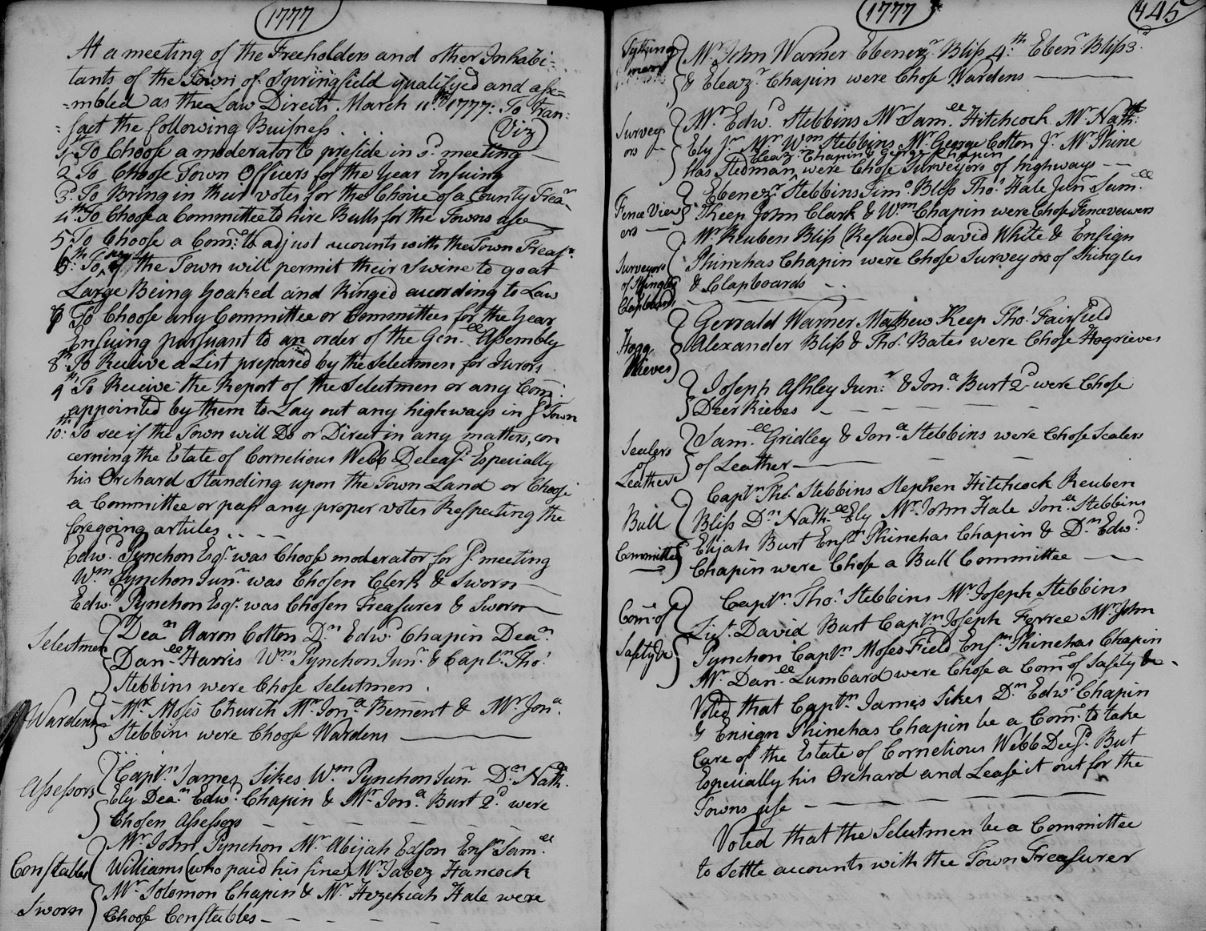 1777
At a meeting of the Freeholders and other Inhabi-
tants of the Town of Springfield qualifyed and asse-
-mbled as the Law Directs. March 11th 1777. To Tran-
-sact the following Buisness Viz
1 To Choose a moderator to preside in sd. meeting
2 To Choose Town Officers for the Year Ensuing
3d. To Bring in their votes for the Choice of a County Trear
4th To Choose a Committee to hire Bulls for the Towns use
5 To Choose a Comte. to adjust accounts with the Town Treasr.
6th. To see if the Town will permit their Swine to go at
Large Being Yoaked and Ringed according to Law
7 To Choose any Committee or Committees for the Year
Ensuing pursuant to an order of the Genll Assembly
8th To Receive a List prepared by the Selectmen for Jurors
9th To Receive the Report of the Selectmen or any Com
appointed by them to Lay out any highways in sd Town
10th: To see if the Town will Do or Direct in any matters, con
cerning the Estate of Cornelious Webb Deceasd. Especially
his Orchard Standing upon the Town Land or Choose
a Committee or pass any proper votes Respecting the
foregoing articles
Edwd. Pynchon Esqr. was Choose moderator for sd. meeting
Wm. Pynchon Junr. was Chosen Clerk & Sworn
Edwd. Pynchon Esqr. was Chosen Treasurer & Sworn
Selectmen Dean. Aaron Colton Dn. Edwd. Chapin Dean.
Danll Harris Wm. Pynchon Junr. & Captn. Thos.
Stebbins were Chose Selectmen.
Wardens Mr. Moses Church Mr. Jona. Bement & Mr. Jona.
Stebbins were Choose Wardens
Assessors Captn. James Sikes Wm. Pynchon Junr. Dn. Nath.
Ely Dean. Edwd. Chapin & Mr. Jona. Burt 2d. were
Chosen Assessors
Constables Sworn Mr. John Pynchon Mr. Abijah Edson Ensn. Samll
Williams (who paid his fine) Mr. Jabez Hancock
Mr. Solomon Chapin & Mr. Hezekiah Hale were
Choose Constables
1777
445
Tything men Mr. John Warner Ebenezr. Bliss 4th. Ebenr. Bliss 3d.
& Eleazr. Chapin were Chose Wardens
Surveyors Mr. Edwd. Stebbins Mr. Samll. Hitchcock Mr. Nathll
Ely Jr. Mr. Wm. Stebbins Mr. George Colton Jr. Mr. Phine
Eleazr. Chapin George Chapin
has Stedman were Chose Surveyors of highways
Fence Viewers Ebenezr. Stebbins Simo. Bliss Thos. Hale Junr. Samll
Keep John Clark & Wm. Chapin were Chose Fenceviewers
Surveyors of Shingles Clapboards Mr. Reuben Bliss (Refused) David White & Ensign
Phinehas Chapin were Chose Surveyors of Shingles
& Clapboards
Hogg Rieves Gerrald Warner Mathew Keep Thos. Fairfield
Alexander Bliss & Thos. Bates were Chose Hogrieves
Joseph Ashley Junr. & Jona. Burt 2d. were Chose
Deer Rieves
Sealers Leather Samll Gridley & Jona. Stebbins were Chose Sealers
of Leather
Bull Committee Captn. Thos. Stebbins Stephen Hitchcock Reuben
Bliss Dn. Nathll Ely Mr. John Hale Jona. Stebbins
Elijah Burt Ensn. Phinehas Chapin & Dn. Edwd.
Chapin were Chose a Bull Committee
Comte. of Safety &c Captn. Thos. Stebbins Mr. Joseph Stebbins
Liut. David Burt Captn. Joseph Ferree Mr. John
Pynchon Captn. Moses Field Ensn. Phinehas Chapin
Mr. Danll Lumbard were Chose a Com of Safety &c.
Voted that Captn. James Sikes Dn. Edwd. Chapin
& Ensign Phinehas Chapin be a Com. to take
Care of the Estate of Cornelious Webb Decsd. But
Especially his Orchard and Lease it out for the
Towns use
Voted that the Selectmen be a Committee
to settle accounts with the Town Treasurer